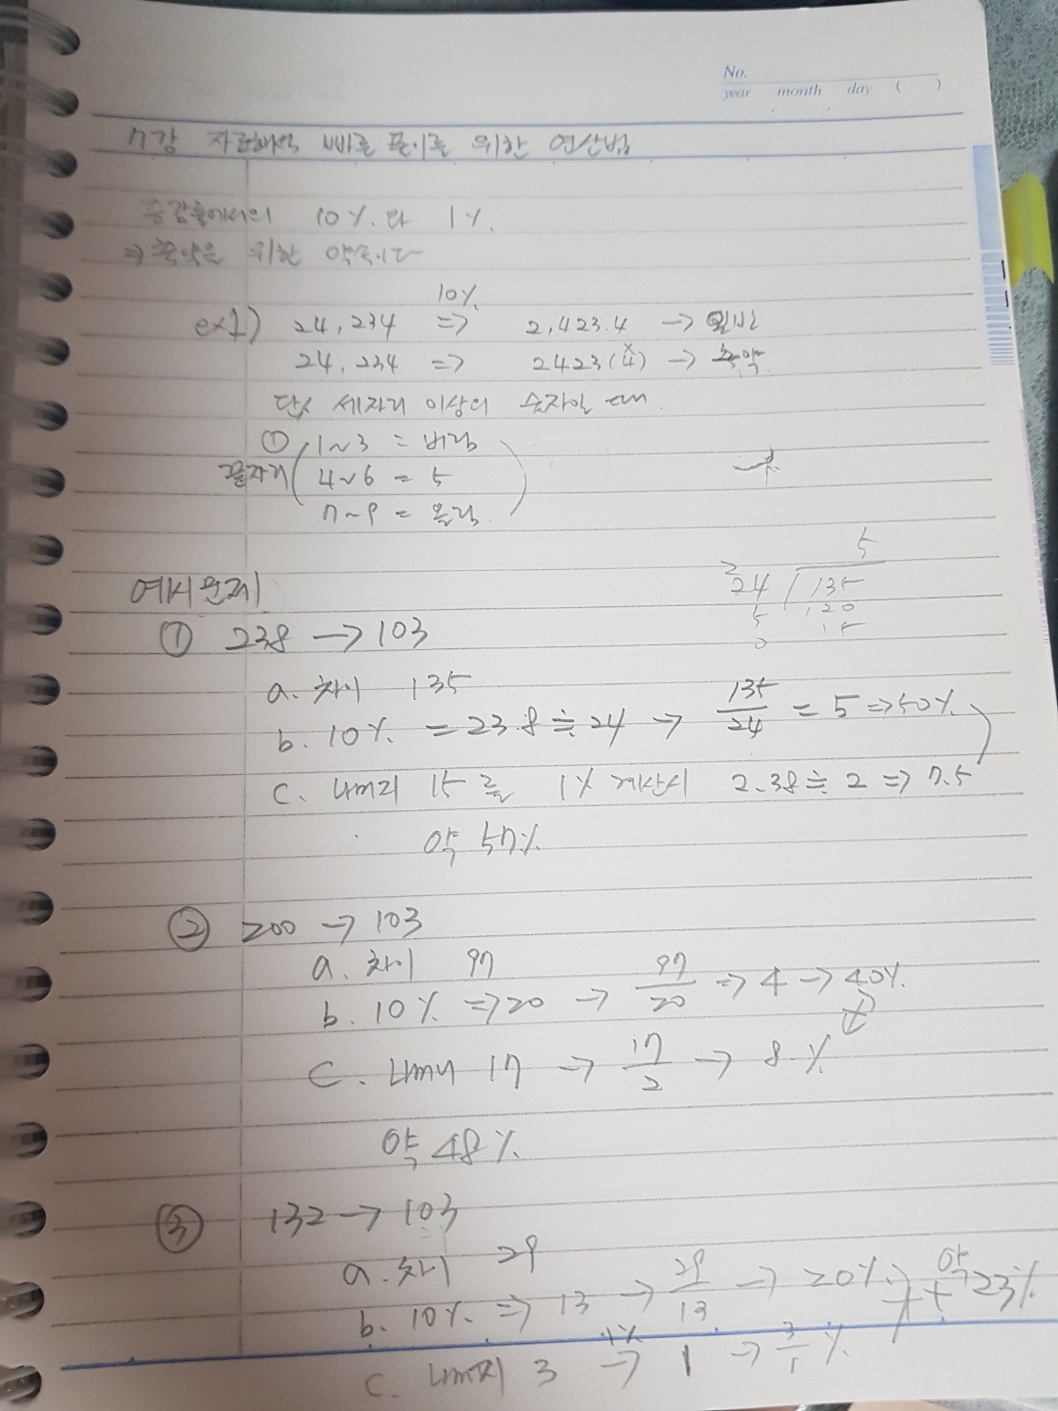 No.
year month day ( )
7강 자료해석 빠른 풀이를 위한 연산법
증감률에서의 10%와 1%.
⇒ 축약은 위한 약속이다
10%
ex1) 24,234 ⇒ 2,423.4 → 일반
24,234 ⇒ 2423(4) → 축약
단, 세자리 이상의 숫자일 때.
① 1~3 = 버림
끝자리 4~6 = 5
7~9 = 올림
예시문제
① 238 → 103
a. 차이 135
b. 10% = 23.8 ≒ 24 → 135/24 = 5 ⇒ 50%
c. 나머지 15를 1% 계산시 2.38 ≒ 2 ⇒ 7.5
약 57%
5
24 / 135
5 120
0 15
② 200 → 103
a. 차이 97
b. 10% ⇒ 20 → 97/20 ⇒ 4 → 40%
c. 나머니 17 → 17/2 → 8%
약 48%
③ 132 → 103
a. 차이 29
b. 10% ⇒ 13 → 29/13 → 20% + 약 23%
c. 나머지 3 1% → 1 → 3/1 %